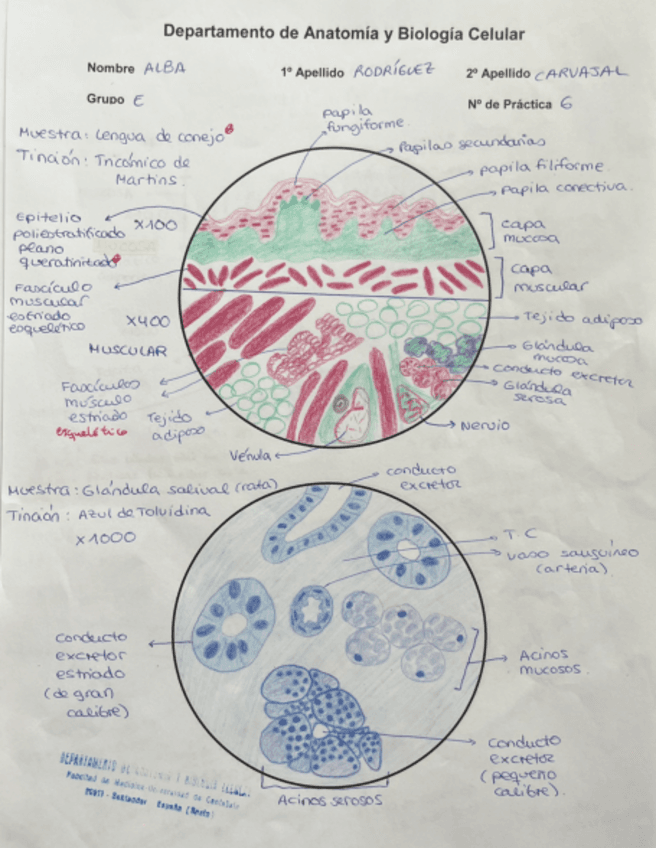 Departamento de Anatomía y Biología Celular
Nombre ALBA 1º Apellido RODRÍGUEZ 2º Apellido CARVAJAL
Grupo E Nº de Práctica 6
Muestra: Lengua de conejo
Tinción: Tricómico de
Martins.
papila
fungiforme.
Papilas secundarias
papila filiforme.
Papila conectiva.
Epitelio
poliestratificado
plano
queratinizado
x100
capa
mucosa
capa
muscular
Fascículo
muscular
estriado
esquelético
x400
MUSCULAR
Tejido adiposo
Glándula
mucosa
conducto excretor
Glándula
serosa
Fascículos
músculo
estriado
esquelético
Tejido
adiposo
Nervio
Vénula
Muestra: Glándula salival (rata)
Tinción: Azul de Toluidina
x1000
conducto
excretor
T.C
vaso sanguíneo
(arteria).
conducto
excretor
estriado
(de gran
calibre)
Acinos
mucosos.
conducto
excretor
(pequeño
calibre).
Acinos serosos
DEPARTAMENTO DE ANATOMIA Y BIOLOGIA CELULAR
Facultad de Medicina-Universidad de Cantabria
Santander España